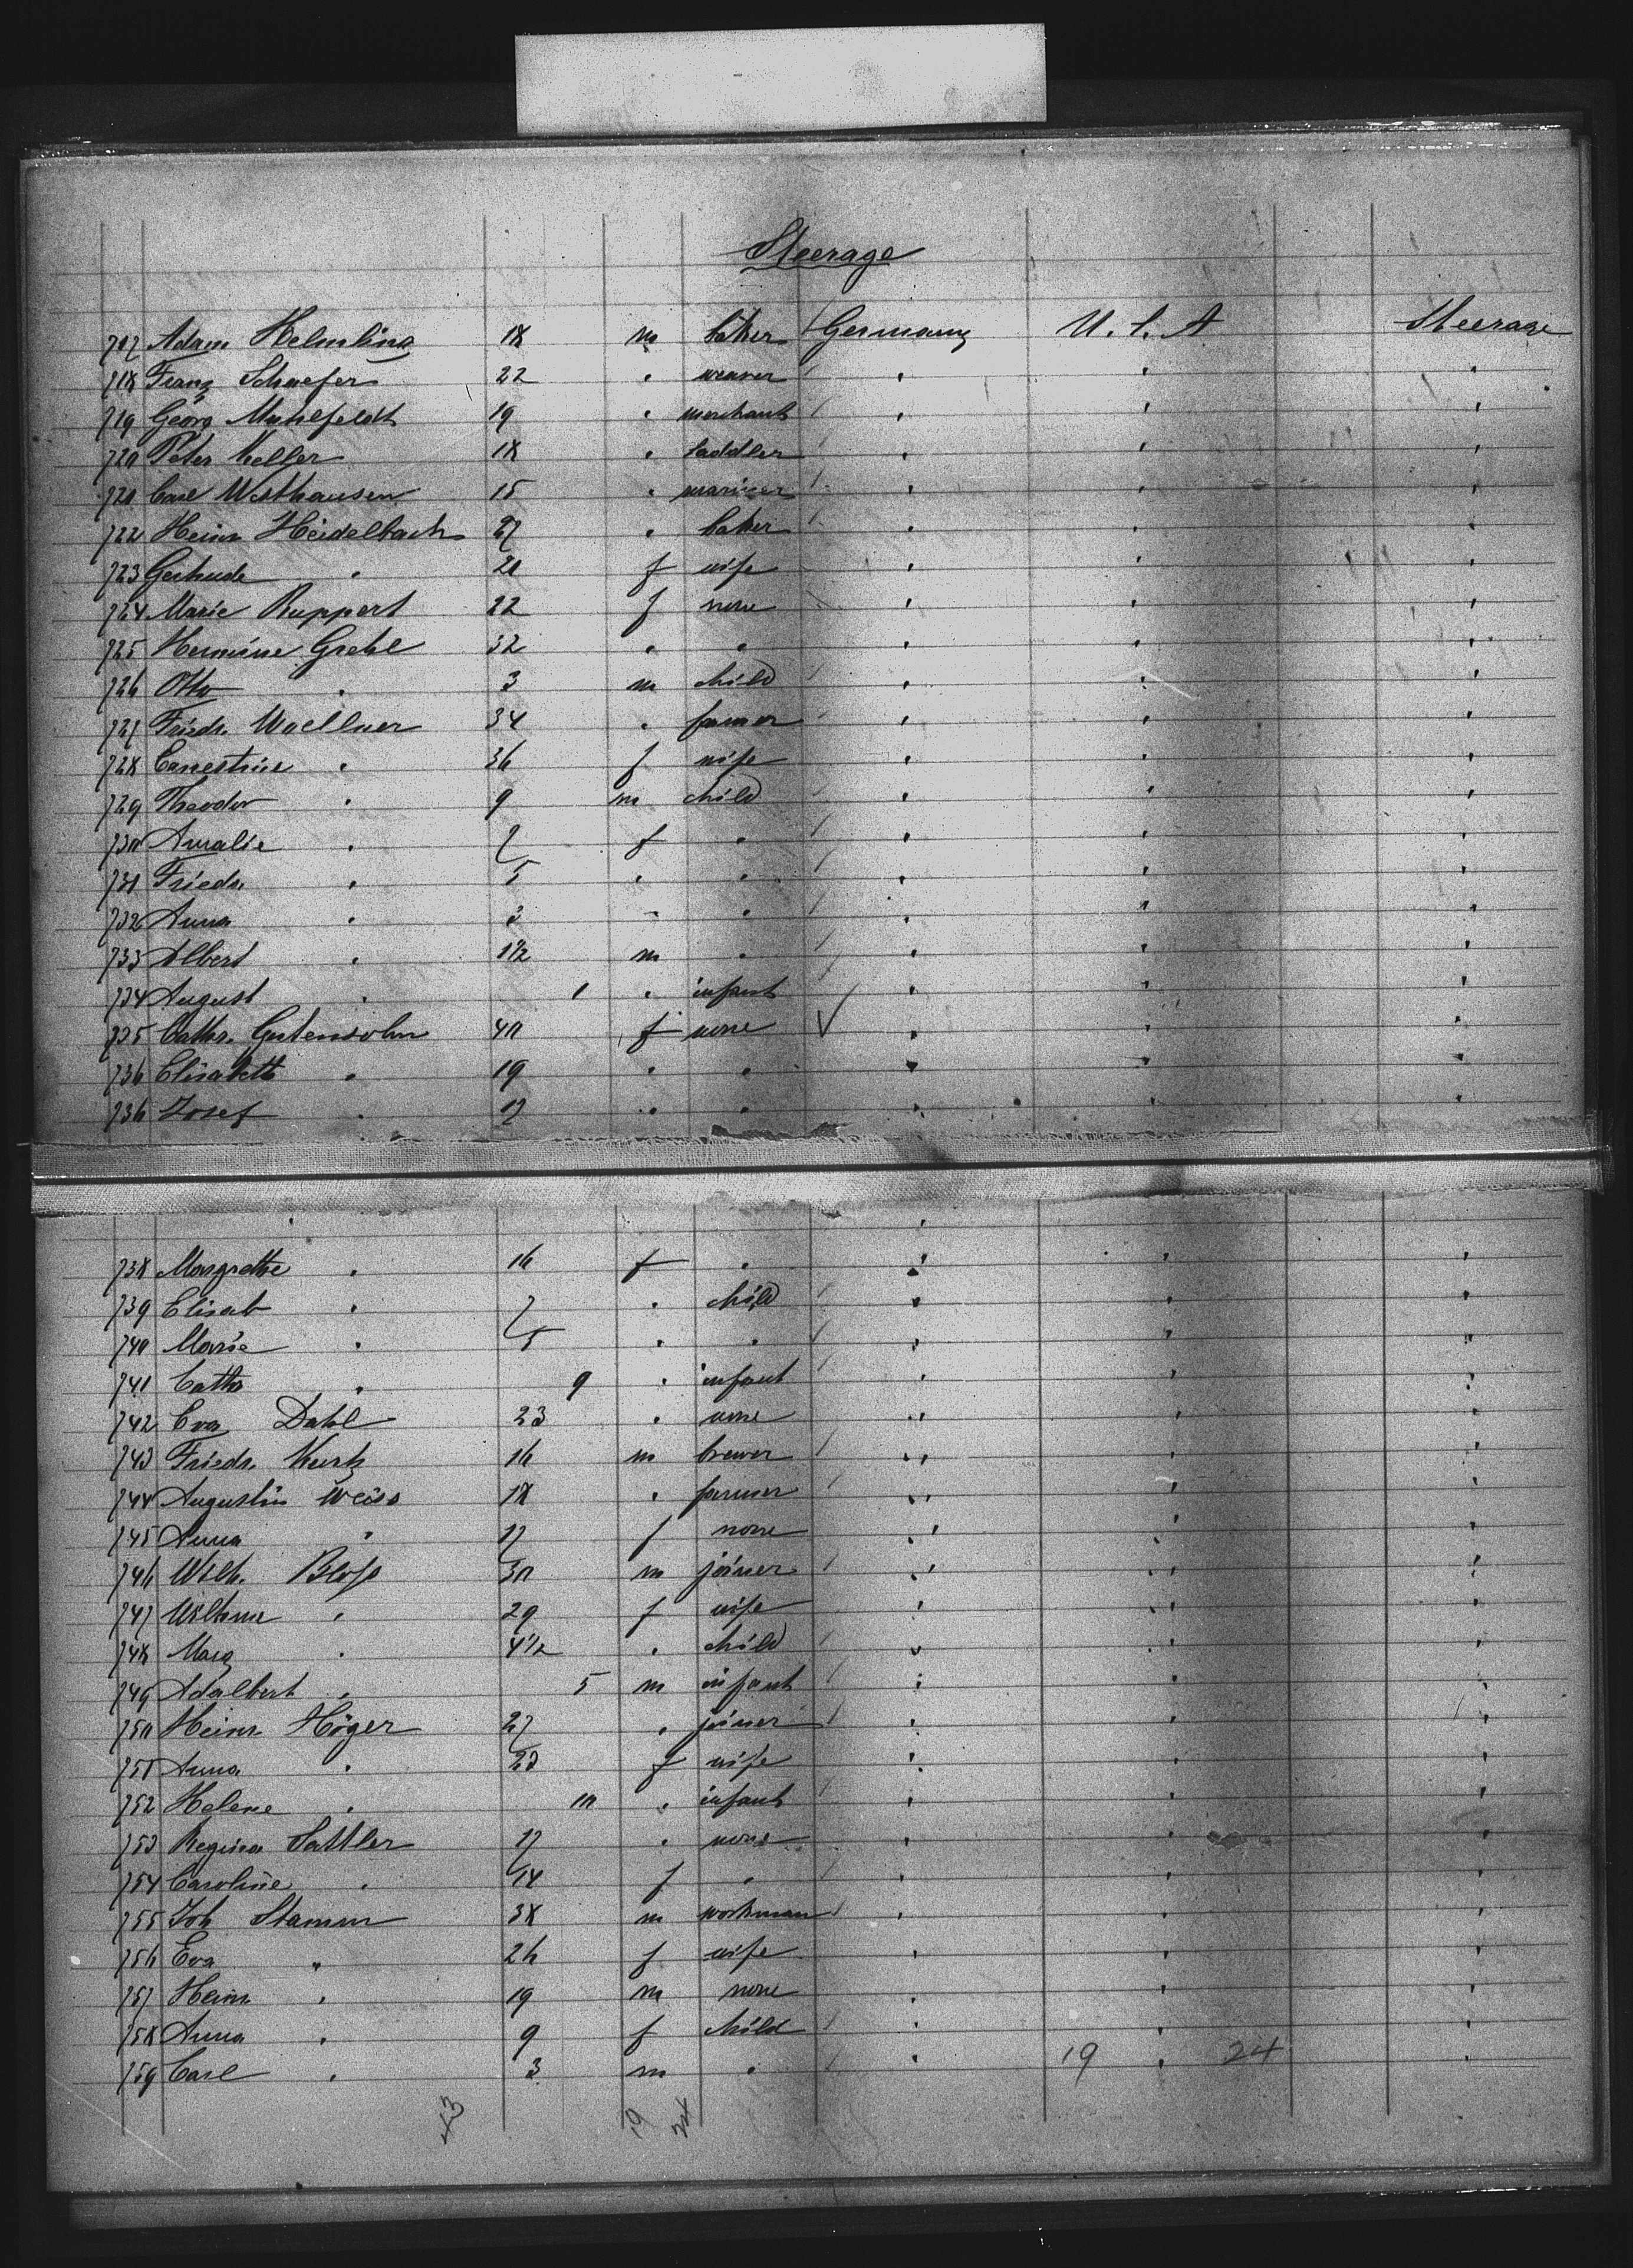 Steerage
717 Adam Helmling 18 m baker Germany U. S. A Steerage
718 Franz Schaefer 22 " weaver " " "
719 Georg Muhlfeldt 19 " merchant " " "
720 Peter Keller 18 " saddler " " "
721 Carl Westhausen 15 " mariner " " "
722 Heinr Heidelbach 27 " baker " " "
723 Gertrude " 20 f wife " " "
724 Marie Ruppert 22 f none " " "
725 Hermine Grehl 32 " " " " "
726 Otto " 3 m child " " "
727 Friedr. Woellner 34 " farmer " " "
728 Ernestine " 36 f wife " " "
729 Theodor " 9 m child " " "
730 Amalie " 7 f " " " "
731 Friedr. " 5 " " " " "
732 Anna " 3 " " " " "
733 Albert " 1 1/2 m " " " "
734 August " 1 " infant " " "
735 Cathr. Gutensohn 40 f none " " "
736 Elisabeth " 19 " " " " "
736 Josef " 17 " " " " "
738 Margrethe " 16 f " " " "
739 Elisab " 7 " child " " "
740 Marie " 5 " " " " "
741 Cathr " 9 " infant " " "
742 Eva Dahl 23 " none " " "
743 Friedr. Kurtz 16 m brewer " " "
744 Augustin Weiss 18 " farmer " " "
745 Anna " 17 f none " " "
746 Wilh. Bloss 30 m joiner " " "
747 Wilhme " 29 f wife " " "
748 Marg " 4 1/2 " child " " "
749 Adalbert " 5 m infant " " "
750 Heinr. Höger 27 " joiner " " "
751 Anna " 23 f wife " " "
752 Helene " 10 " infant " " "
753 Regina Sattler 17 " none " " "
754 Caroline " 14 f " " " "
755 Joh Stamm 38 m workman " " "
756 Eva " 26 f wife " " "
757 Heinr. " 19 m none " " "
758 Anna " 9 f child " " "
759 Carl " 3 m " " 19 " 24 "
43 19 24